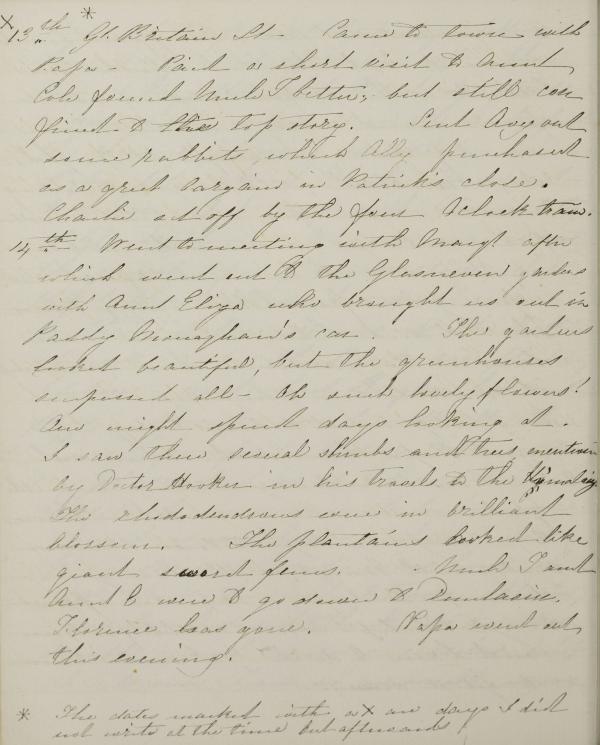 x 13th * Gt. Britain St - Came to town with
Papa - Paid a short visit to Aunt
Cole found Uncle T better, but still con
fined to the top story. Sent out
some rabbits, which Ally purchased
as a great bargain in Patrick's close.
Charlie set off by the four O'clock train.
14th Went to meeting with Margt after
which went out to the Glasneven gardens
with Aunt Eliza who brought us out in
Paddy Monaghan's car. The gardens
looked beautiful, but the greenhouses
surpassed all - Oh such lovely flowers!
One might spend days looking at.
I saw there several shrubs and trees mention
by Doctor Hooker in his travels to the Himalaya
The rhododendrons were in brilliant
blossom. The plantains looked like
giant sword ferns. Uncle T and
Aunt E were to go down to
Florence has gone. Papa went out
this evening.
* The dates marked with a x are days I did
not write at the time but afterwards